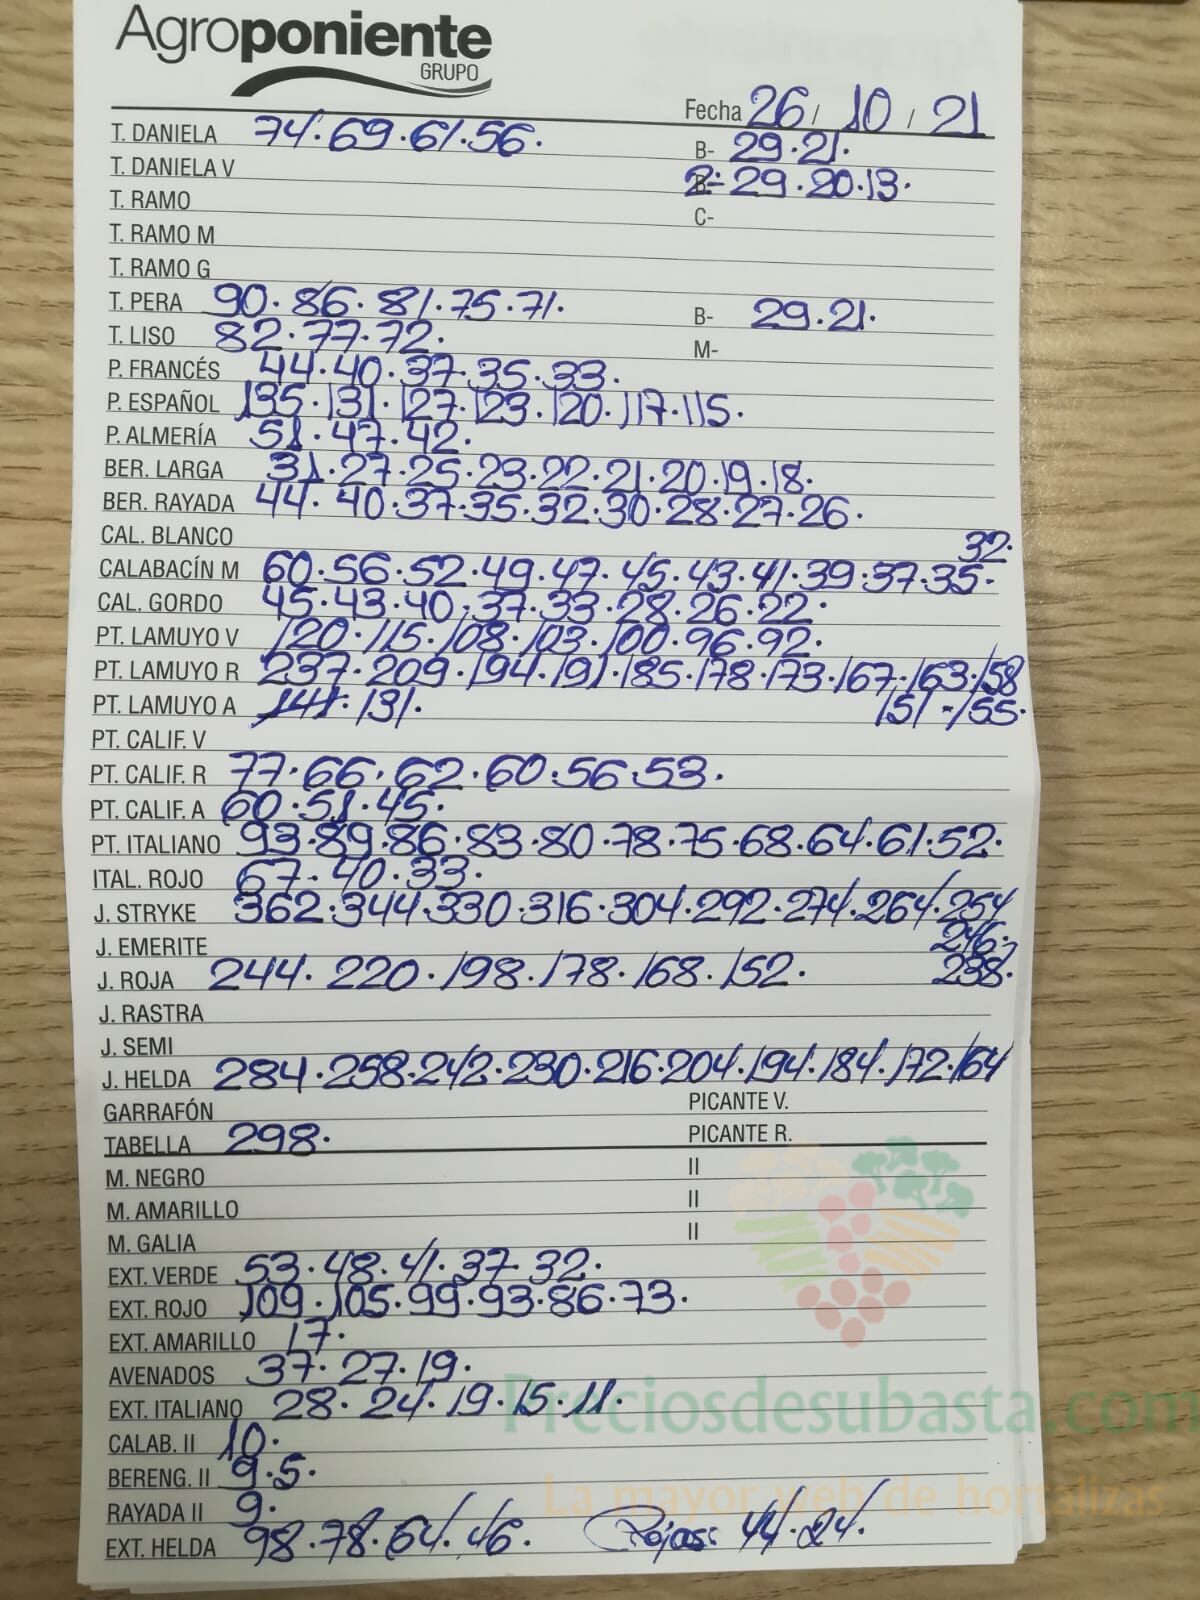 Agroponiente
GRUPO
Fecha 26 / 10 / 21
T. DANIELA 74.69.61.56. B- 29.21.
T. DANIELA V 2- 29.20.13.
T. RAMO C-
T. RAMO M
T. RAMO G
T. PERA 90.86.81.75.71. B- 29.21.
T. LISO 82.77.72. M-
P. FRANCÉS 44.40.37.35.33.
P. ESPAÑOL 135.131.127.123.120.117.115.
P. ALMERÍA 51.47.42.
BER. LARGA 31.27.25.23.22.21.20.19.18.
BER. RAYADA 44.40.37.35.32.30.28.27.26.
CAL. BLANCO 32.
CALABACÍN M 60.56.52.49.47.45.43.41.39.37.35.
CAL. GORDO 45.43.40.37.33.28.26.22.
PT. LAMUYO V 120.115.108.103.100.96.92.
PT. LAMUYO R 237.209.194.191.185.178.173.167.163.158
PT. LAMUYO A 141.131. 151-155.
PT. CALIF. V
PT. CALIF. R 77.66.62.60.56.53.
PT. CALIF. A 60.51.45.
PT. ITALIANO 93.89.86.83.80.78.75.68.64.61.52.
ITAL. ROJO 67.40.33.
J. STRYKE 362.344.330.316.304.292.274.264.254
J. EMERITE 246.
J. ROJA 244.220.198.178.168.152. 238.
J. RASTRA
J. SEMI
J. HELDA 284.258.242.230.216.204.194.184.172.164
GARRAFÓN PICANTE V.
TABELLA 298. PICANTE R.
M. NEGRO II
M. AMARILLO II
M. GALIA II
EXT. VERDE 53.48.41.37.32.
EXT. ROJO 109.105.99.93.86.73.
EXT. AMARILLO 17.
AVENADOS 37.27.19.
EXT. ITALIANO 28.24.19.15.11.
Preciosdesubasta.com
CALAB. II 10.
BERENG. II 9.5.
La mayor web de hortalizas
RAYADA II 9.
EXT. HELDA 98.78.64.46. Rojas: 44.24.